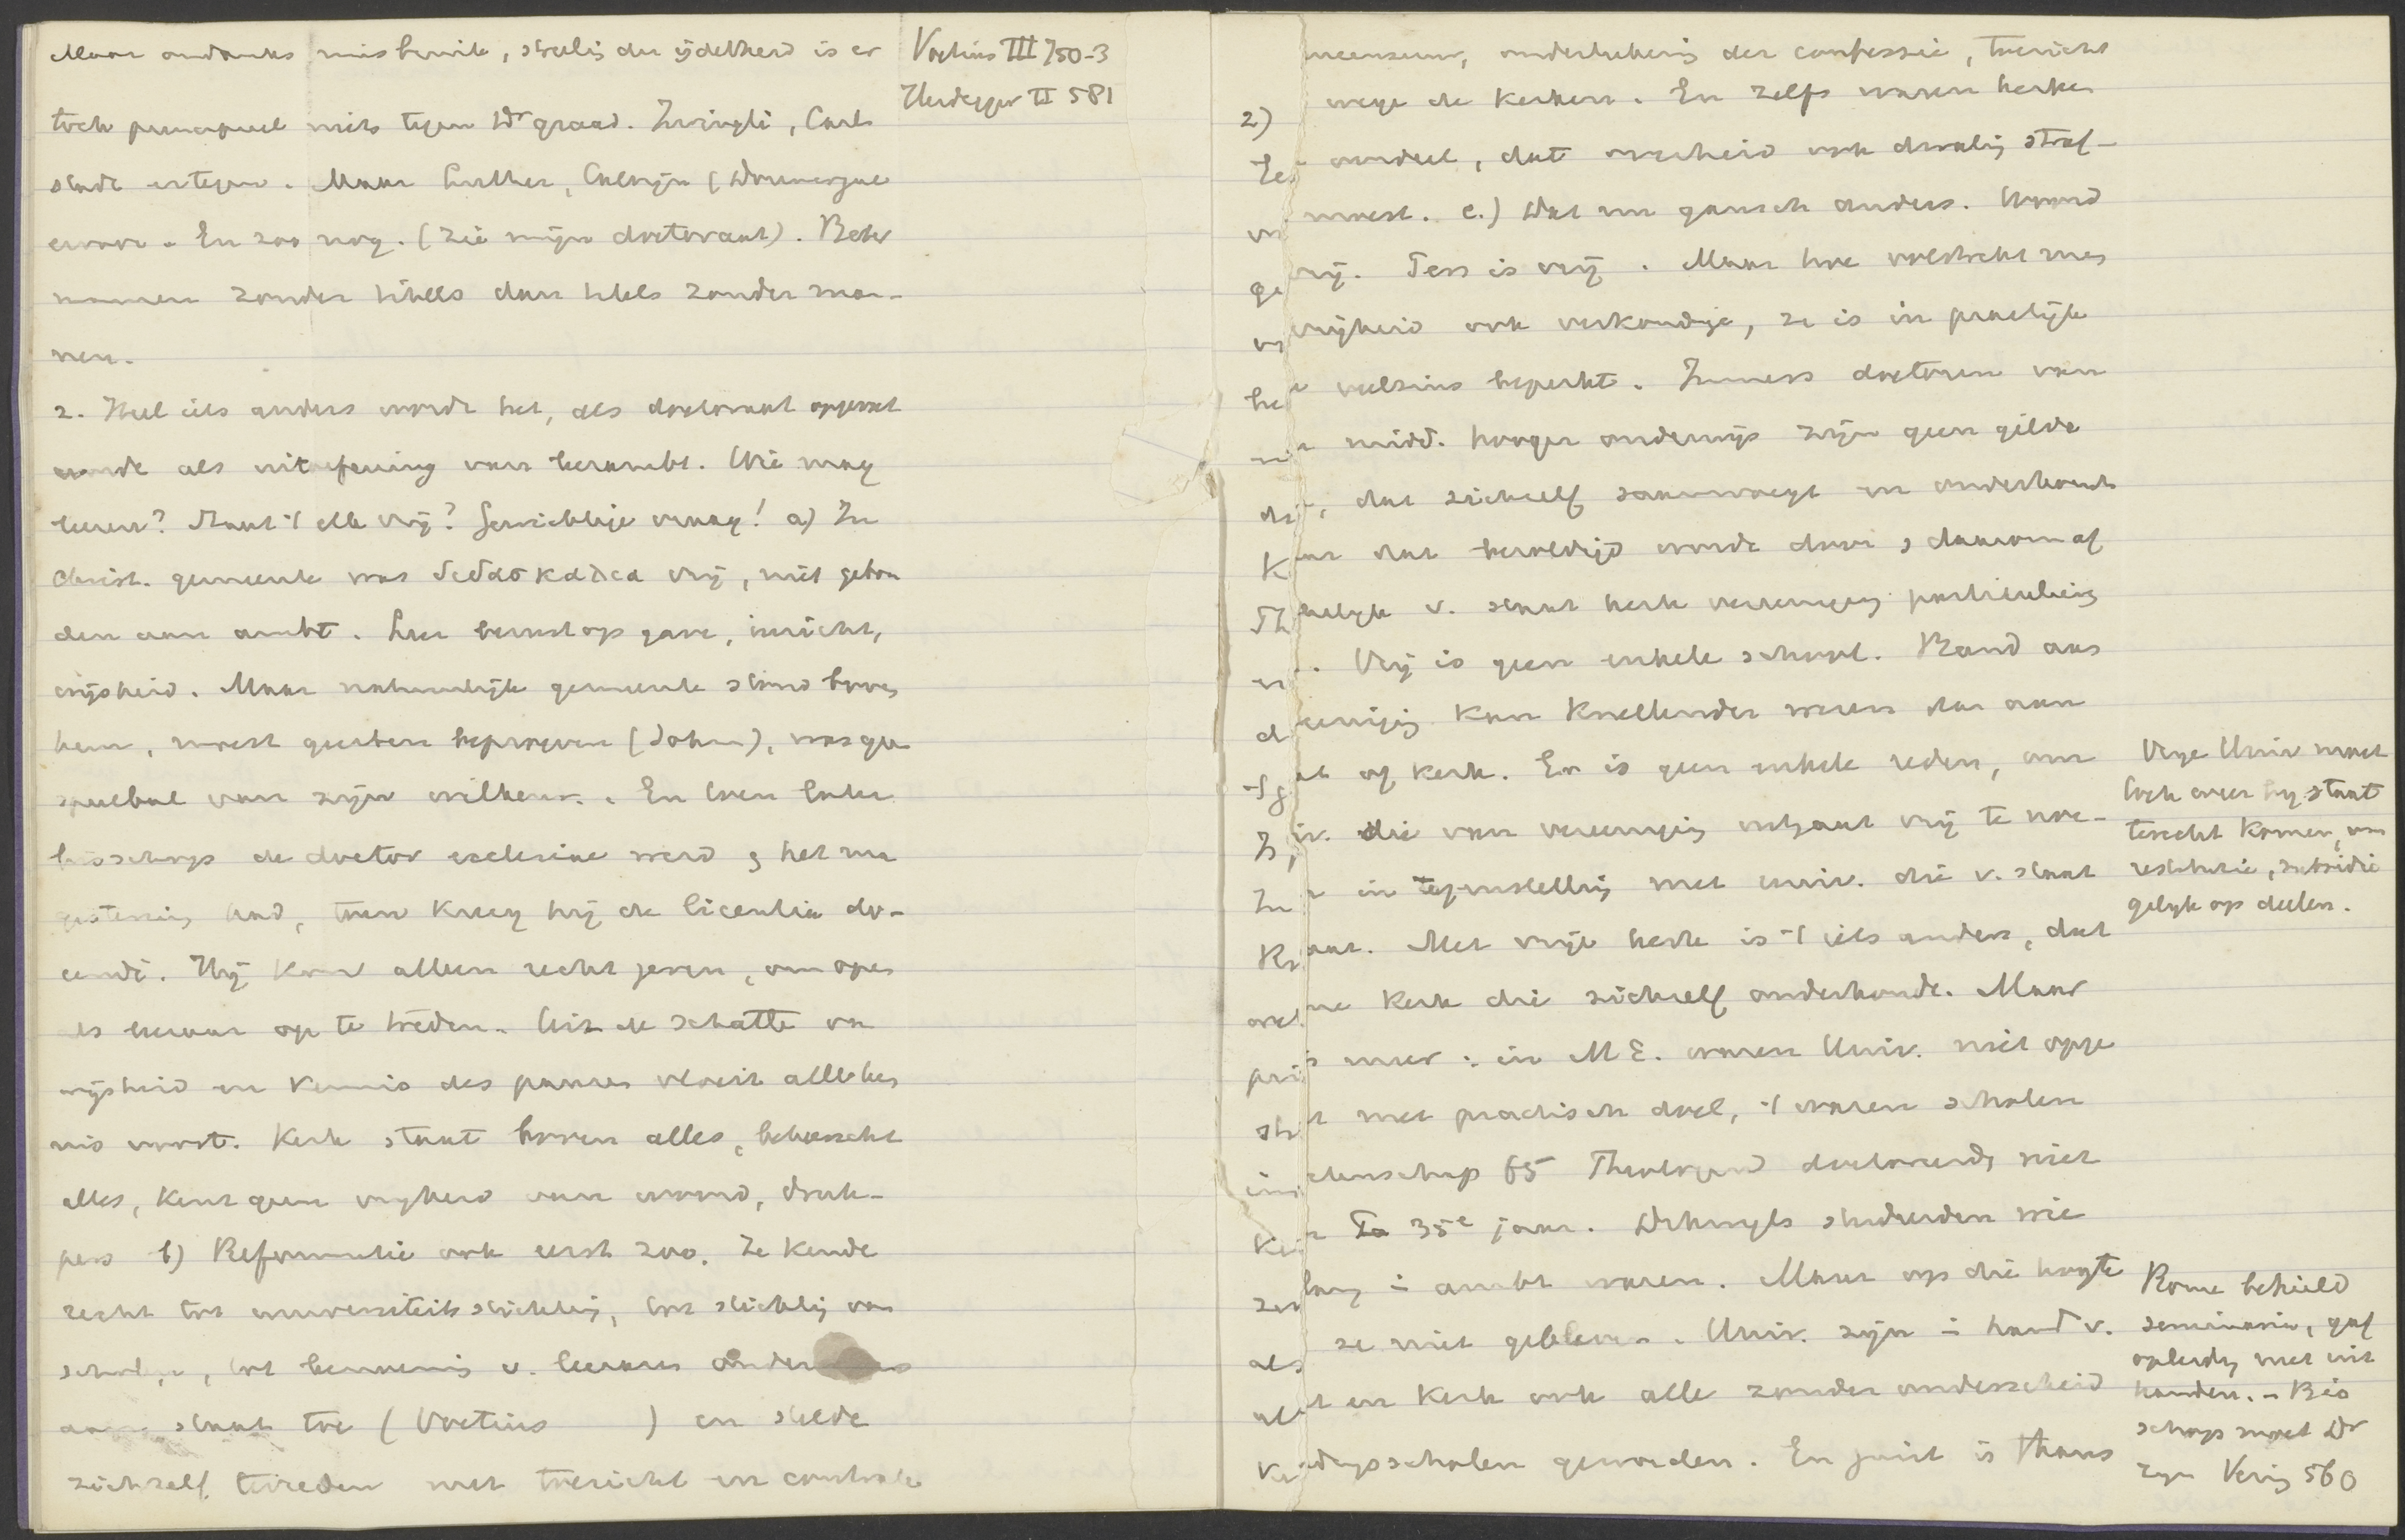 Maar ondanks misbruik, streeling der ijdelheid is er
toch principieel niets tegen Dr graad. Zwingli, Carl-
stadt ertegen. Maar Luther, Calvijn (Doumergue
ervoor. En zoo nog. (Zie mijn doctoraat). Beter
mannen zonder titels dan titels zonder man-
nen.
2. Heel iets anders wordt het, als doctoraat opgevat
wordt als uitoefening van leerambt. Wie mag
leeren? Staat 't elk vrij? Gewichtige vraag! a) In
Christ. gemeente was διδασκαλια vrij, niet gebon
den aan ambt. Leer berust op gave, inzicht,
wijsheid. Maar natuurlijk gemeente stond boven
hem, moest geesten beproeven (Joh), was geen
speelbal van zijn willekeur. En toen later
bisschop de doctor ecclesiae werd & het ma
gisterium had, toen kreeg hij de licentia do-
cendi. Hij kon alleen recht geven, om open
als leeraar op te treden. Uit de schatte van
wijsheid en kennis des pausen vloeit alle ken
nis voort. Kerk staat boven alles, beheerscht
alles, kent geen vrijheid van woord, druk-
pers b) Reformatie ook eerst zoo. Ze kende
recht tot universiteitsstichting, tot stichting van
scholen, tot benoeming v. leeraars
aan staat toe (Voetius ) en stelde
zichzelf tevreden met toezicht en controle
Voetius III 750-3
Heidegger II 581
censuur, onderteekening der confessie, toezicht
wege de kerken. En zelfs waren kerken
oordeel, dat overheid ook dwaling straf-
moest. c.) Dat nu gansch anders. Woord
vrij. Pers is vrij. Maar hoe volstrekt men
vrijheid ook verkondige, ze is in practijk
veelzins beperkt. Immers doctoren van
midd. hooger onderwijs zijn geen gilde
, dat zichzelf saamvoegt en onderhoudt
maar dat bezoldigd wordt door & daarom af
hankelijk v. staat kerk vereeniging particulier
. Vrij is geen enkele school. Band aan
vereeniging kan knellender wezen dan aan
staat of kerk. Er is geen enkele reden, om
univ. die van vereeniging uitgaat vrij te noe-
in tegenstelling met univ. die v. staat
gaat. Met vrije kerk is 't iets anders, dat
eene kerk die zichzelf onderhoudt. Maar
meer: in M E. waren Univ. niet opge
met practisch doel, 't waren scholen
wetenschap 65 Theologend doctorandi niet
35e jaar. Dikwijls studeerden wie
lang in ambt waren. Maar op die hoogte
ze niet gebleven. Univ. zijn in hand v.
en kerk ook alle zonder onderscheid
opleidingsscholen geworden. En juist is thans
2)
Vrije Univ moet
toch weer bij staat
terecht komen, om
restitutie, subsidie
gelijk op deelen.
Rome behield
seminaria, gaf
opleiding niet uit
handen. - Bis
schop moet Dr
zijn Vering 560